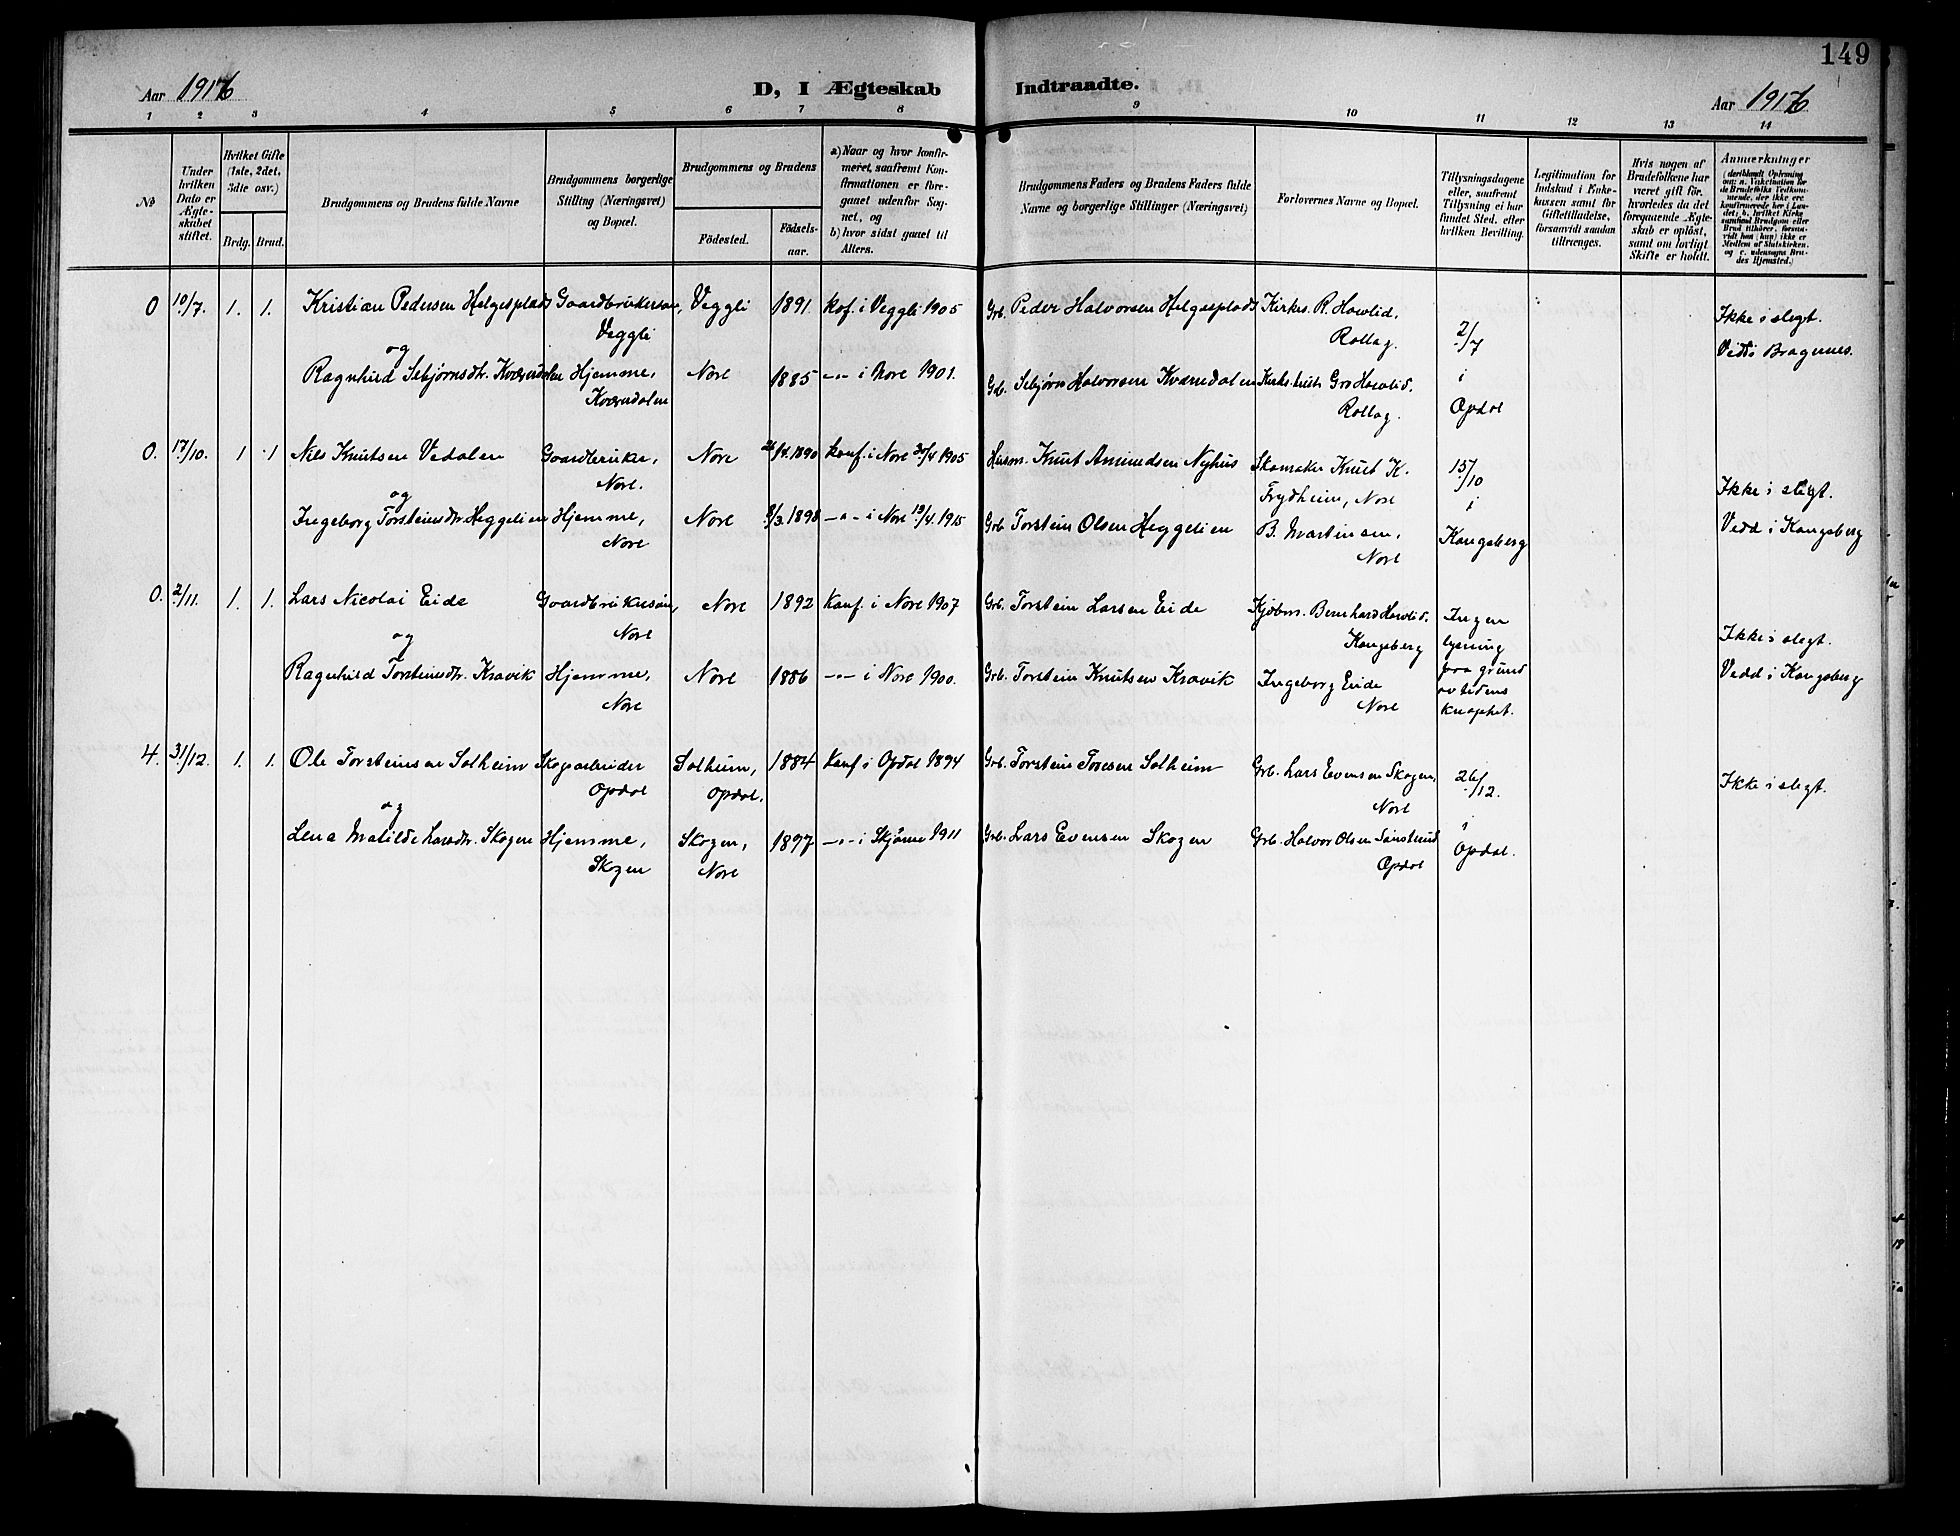 149
Aar 1916
D, I Ægteskab Indtraadte.
Aar 1916
1 2 3 4 5 6 7 8 9 10 11 12 13 14
No
Under hvilken Dato er Ægteskabet stiftet.
Hvilket Gifte (1ste, 2det, 3dte osv.)
Brdg. Brud.
Brudgommens og Brudens fulde Navne
Brudgommens borgerlige Stilling (Næringsvei) og Bopæl.
Brudgommens og Brudens
Födested.
Födselsaar.
a) Naar og hvor konfirmeret, saafremt Konfirmationen er foregaaet udenfor Sognet, og
b) hvor sidst gaaet til Alters.
Brudgommens Faders og Brudens Faders fulde Navne og borgerlige Stillinger (Næringsvei)
Forlovernes Navne og Bopæl.
Tillysningsdagene eller, saafremt Tillysning ei har fundet Sted, efter hvilken Bevilling.
Legitimation for Indskud i Enkekassen samt for Giftetilladelse, forsaavidt saadan tiltrænges.
Hvis nogen af Brudefolkene har været gift för, hvorledes da det foregaaende Ægteskab er oplöst, samt om lovligt Skifte er holdt.
Anmærkninger
0 10/7. 1. 1. Kristian Pedersen Helgesplads Gaardbrukersøn, Veggli 1891. kof. i Veggli 1905 Grb. Peder Halvorsen Helgesplads Kirkes. R. Havlid, Ikke i slegt.
Veggli Rollag. 2/7 Vedd i Bragernes.
og
Ragnhild Sebjørnsdtr. Kværndalen Hjemme, Nore 1885 -"- i Nore 1901. Gb. Sebjørn Halvorsen Kværndalen Gro Havlid. i
Kværndalen Rollag. Opdal
0. 17/10. 1 1 Nils Knutsen Vedalen Gaardbruker, Nore /4.1890 konf. i Nore 30/4 1905 Husm. Knut Amundsen Nyhus Skomaker Knut K. 15/10
Nore. Frydheim, Nore Ikke i slegt.
og i
Ingeborg Torsteinsdtr. Heggelien Hjemme, Nore 8/3.1898 -"- i Nore 19/4.1915 Grb. Torstein Olsen Heggelien B. Martinsen, Kongsberg Vedd i Kongsberg
Nore Nore
0. 2/11. 1. 1. Lars Nicolai Eide Gaardbrukersøn, Nore 1892 Konf. i Nore 1907 Grb. Torstein Larsen Eide Kjøbm. Bernhard Havlid. Ingen
Nore Kongsberg lysning Ikke i slegt.
og
Ragnhild Torsteinsdtr. Kravik Hjemme, Nore 1886 -"- i Nore 1900. Grb. Torstein Knutsen Kravik Ingeborg Eide paa grund Vedd i Kongsberg
Nore Nore av tidens
knaphet.
4. 31/12. 1. 1. Ole Torsteinsen Solheim Skogsarbeider Solheim, 1884 Konf i Opdal 1894 Grb. Torstein Toresen Solheim Grb. Lars Evensen Skogen, 26/12. Ikke i slegt.
Opdal Opdal. Nore
og
Lena Matilde Larsdtr. Skogen Hjemme, Skogen, 1897 -"- i Skjönne 1911 Grb. Lars Evensen Skogen Grb. Halvor Olsen i Opdal.
Skogen Nore Opdal